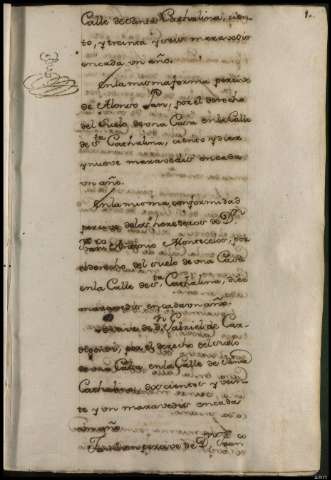 Calle de Santa Cathalina, cien-
to, y treinta y seis maravedis
en cada un año.
En la misma forma percive
de Alonso Pan, por el derecho
del suelo de una Casa en la Calle
de Sta Cathalina, ciento y diez
y nueve maravedis en cada
un año.
En la misma conformidad
percive de los herederos de Dn
Antonio Montecelos, por
el derecho del suelo de una Casa
en la Calle de Sta Cathalina, diez
maravedis en cada un año.
Percive de Dn Gabriel de Caa-
por el derecho del suelo
de una Casa, en la Calle de Santa
Cathalina, doscientos y vein-
te y un maravedis en cada
un año.
percive de Dn Juan